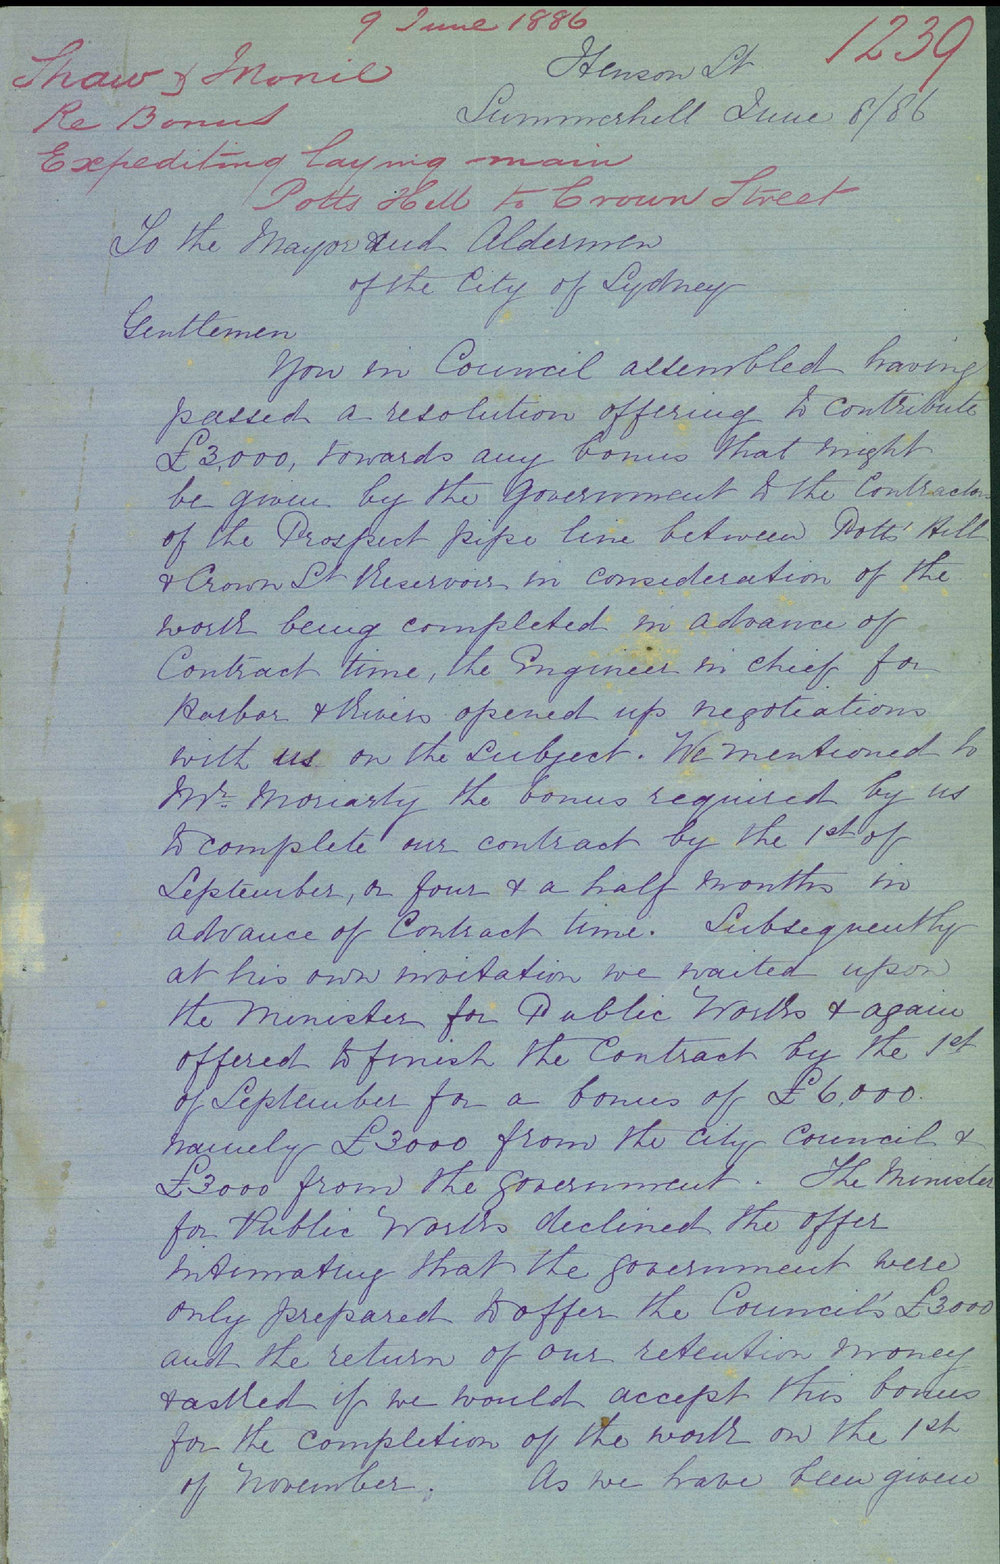 9 June 1886
1239
Shaw & Monie
Re Bonus
Expediting laying main
Potts Hill to Crown Street
Henson St
Summerhill June 8/86
To the Mayor and Aldermen
of the City of Sydney
Gentlemen
You in Council assembled having
passed a resolution offering to contribute
£3,000, towards any bonus that might
be given by the Government to the Contractors
of the Prospect pipe line between Potts' Hill
& Crown St Reservoir in consideration of the
work being completed in advance of
Contract time, the Engineer in chief for
Harbor & Rivers opened up negotiations
with us on the subject. We mentioned to
Mr. Moriarty the bonus required by us
to complete our contract by the 1st of
September, or four & a half months in
advance of Contract time. Subsequently
at his own invitation we waited upon
the Minister for Public Works & again
offered to finish the Contract by the 1st
of September for a bonus of £6,000.
namely £3000 from the City Council &
£3000 from the Government. The Minister
for Public Works declined the offer
intimating that the government were
only prepared to offer the Council's £3000
and the return of our retention money
& asked if we would accept this bonus
for the completion of the work on the 1st
of November. As we have been given